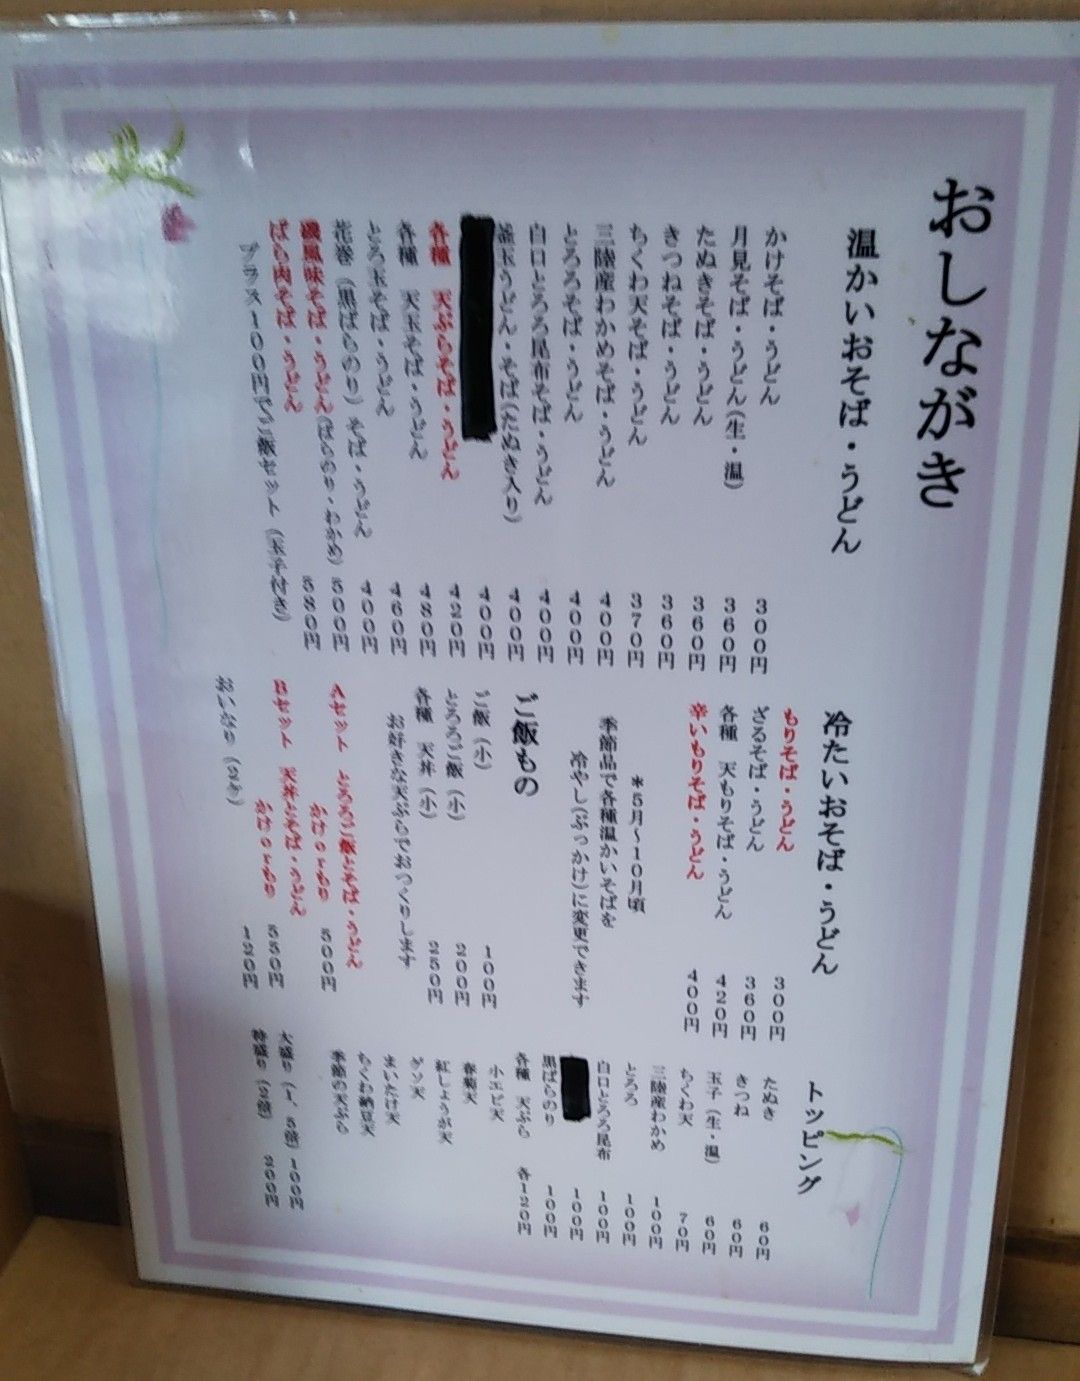 おしながき
温かいおそば・うどん
かけそば・うどん 300円
月見そば・うどん(生・温) 360円
たぬきそば・うどん 360円
きつねそば・うどん 360円
ちくわ天そば・うどん 370円
三陸産わかめそば・うどん 400円
とろろそば・うどん 400円
白口とろろ昆布そば・うどん 400円
釜玉うどん・そば(たぬき入り) 400円
400円
各種 天ぷらそば・うどん 420円
各種 天玉そば・うどん 480円
とろ玉そば・うどん 460円
花巻(黒ばらのり)そば・うどん 400円
磯風味そば・うどん(ばらのり・わかめ) 500円
ばら肉そば・うどん 580円
プラス100円でご飯セット(玉子付き)
冷たいおそば・うどん
もりそば・うどん 300円
ざるそば・うどん 360円
各種 天もりそば・うどん 420円
辛いもりそば・うどん 400円
*5月~10月頃
季節品で各種温かいそばを
冷やし(ぶっかけ)に変更できます
ご飯もの
ご飯(小) 100円
とろろご飯(小) 200円
各種 天丼(小) 250円
お好きな天ぷらでおつくりします
Aセット とろろご飯とそば・うどん
かけorもり 500円
Bセット 天丼とそば・うどん
かけorもり 550円
おいなり(2ケ) 120円
トッピング
たぬき 60円
きつね 60円
玉子(生・温) 60円
ちくわ天 70円
三陸産わかめ 100円
とろろ 100円
白口とろろ昆布 100円
100円
黒ばらのり 100円
各種 天ぷら 各120円
小エビ天
春菊天
紅しょうが天
ゲソ天
まいたけ天
ちくわ納豆天
季節の天ぷら
大盛り(1、5倍) 100円
特盛り(2倍) 200円